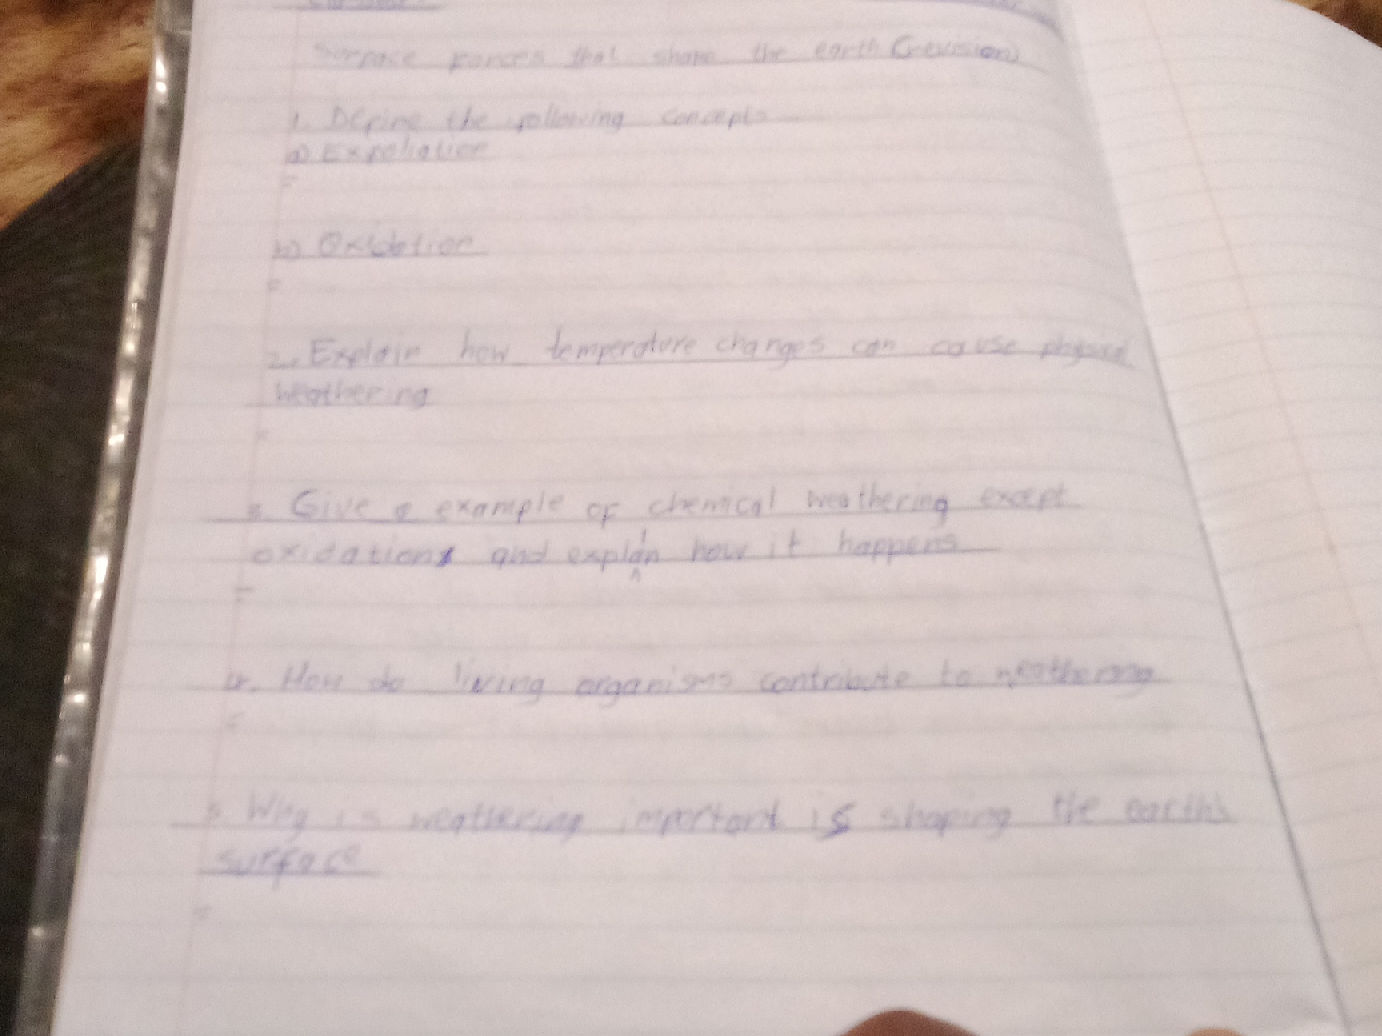 Surface forces that shape the earth (revision)
1. Define the following concepts
a) Exfoliation
=
b) Oxidation
=
2. Explain how temperature changes can cause physical
weathering
3. Give a example of chemical weathering except
oxidation and explain how it happens
=
4. How do living organisms contribute to weathering
=
5. Why is weathering important is shaping the earth's
surface
=